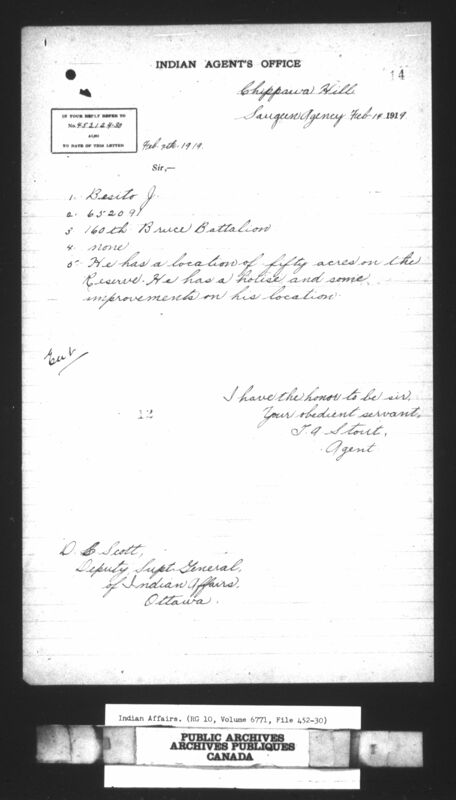 INDIAN AGENT'S OFFICE
14
Chippawa Hill
Saugeen Agency Feb 14 1919
IN YOUR REPLY REFER TO
No. 452124-30
ALSO
TO DATE OF THIS LETTER
Feb. 7th 1919.
Sir,—
1. Besito J.
2. 652091
3. 160th Bruce Battalion
4. none
5. He has a location of fifty acres on the
Reserve. He has a house and some
improvements on his location.
I have the honor to be sir,
Your obedient servant,
T A Stout,
Agent
12
D C Scott,
Deputy Supt General,
of Indian Affairs,
Ottawa.
Indian Affairs. (RG 10, Volume 6771, File 452-30)
PUBLIC ARCHIVES
ARCHIVES PUBLIQUES
CANADA